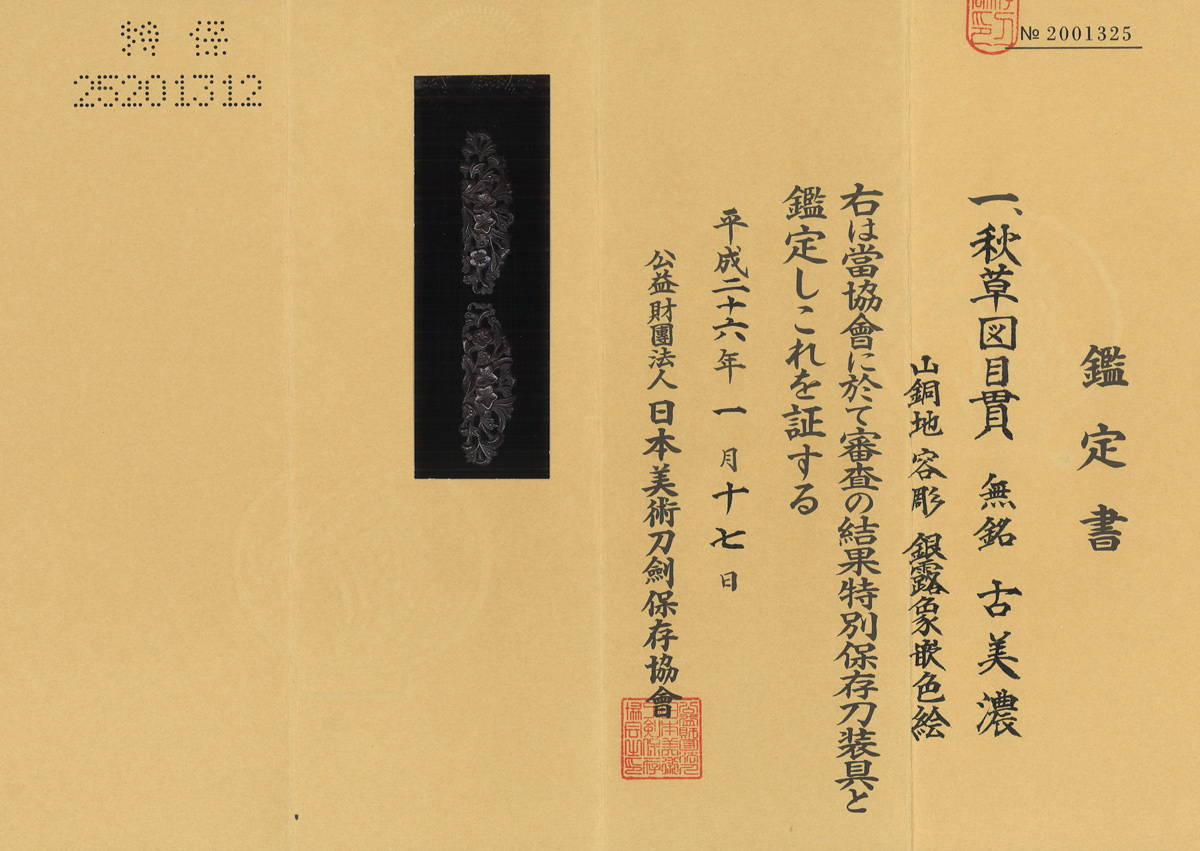 № 2001325
鑑定書
一、秋草図目貫 無銘 古美濃
山銅地 容彫 銀露象嵌色絵
右は當協會に於て審査の結果特別保存刀装具と
鑑定しこれを証する
平成二十六年一月十七日
公益財團法人 日本美術刀劍保存協會
特保
25201312